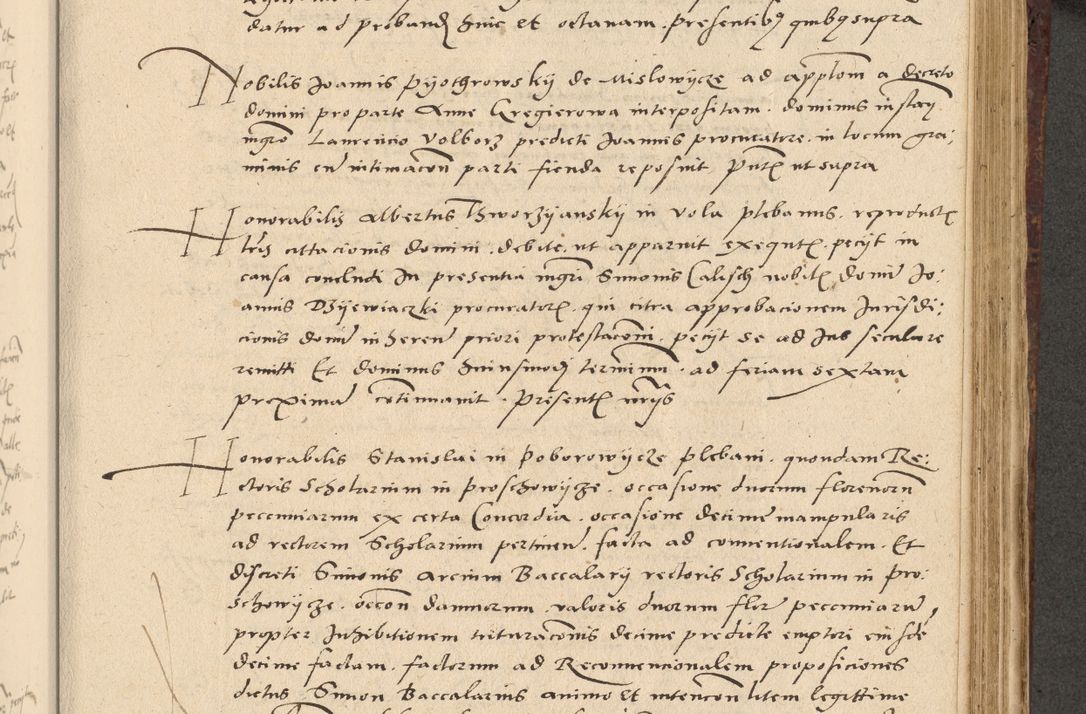 datur ad proband hinc et octanam. presentibq quibq supra
Nobilis Joannis Pyothrowskij de Mislowycze ad applom a decreto
domini pro parte Anne Gregierowa interpositam. dominus instan
mgro Laurencio Volborz predicti Joannis procuratore in locum gra:
minis cu intimacon parti fienda reposuit Pntn ut supra
Honorabilis Albertus Thworzyanskij in Vola plebanus. reproduct
lris cittacionis domini. debite. ut apparuit exequt. pecyt in
causa concludi In presentia mgri Simonis Calisch nobil domi Jo:
annis Dzyewiaczki procurator. qui citra approbacionem Jurisdi:
cionis domi inheren priori protestacioni. pecyt se ad Jus seculare
remitti Et dominus huiusmodj terminum. ad feriam sextam
proximam continuavit. Present
Honorabilis Stanislai in Poborowycze plebani. quondam Re:
ctoris Scholarium in Proschowycze. occasione duorum florenorum
pecuniarum ex certa Concordia. occasione decime manipularis
ad rectorem Scholarium pertinen. facta ad conventionalem. Et
discreti Simonis arcium Baccalarij rectoris Scholarium in Pro:
schowycze. occon damnorum. valoris duorum flor pecuniarum,
propter Inhibitionem trituraconis decime predicte emptori eiusde
decime factam. factorum ad Reconvencionalem proposiciones
dictus Simon Baccalarius animo et intencon litem legittime